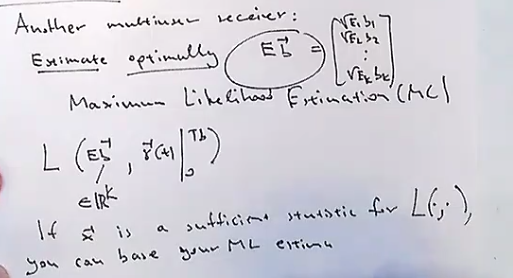 Another multiuser receiver:
Estimate optimally E b⃗ = [√E₁ b₁
√E₂ b₂
⋮
√E_K b_K]
Maximum Likelihood Estimation (ML)
L (E b⃗ , r⃗(t) |₀^Tb )
∈ ℝ^K
If x⃗ is a sufficient statistic for L(·,·),
you can base your ML estima